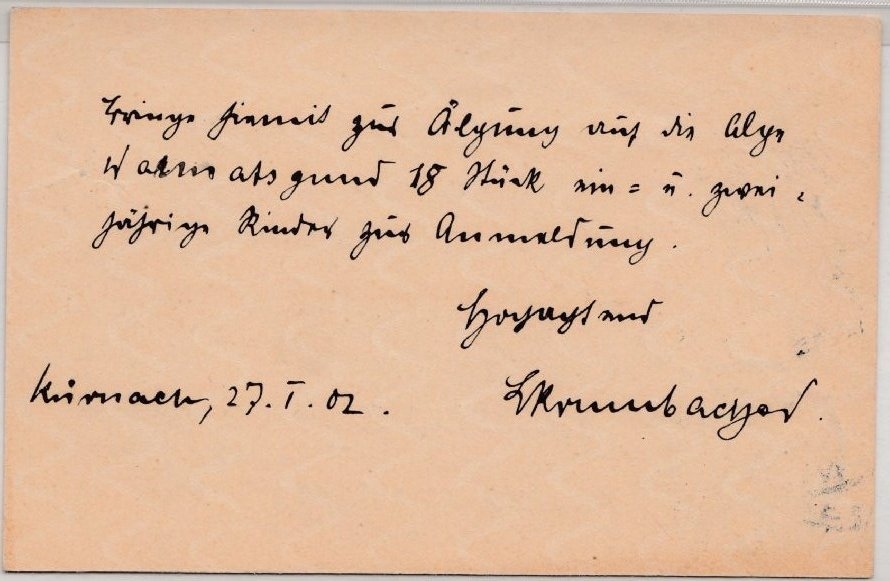 bringe hiemit zur Älpung auf die Alpe
Warmatsgund 18 Stück ein= u. zwei=
jährige Rinder zur Anmeldung.
Hochachtend
Kürnach, 27. I. 02.
LKrumbacher.